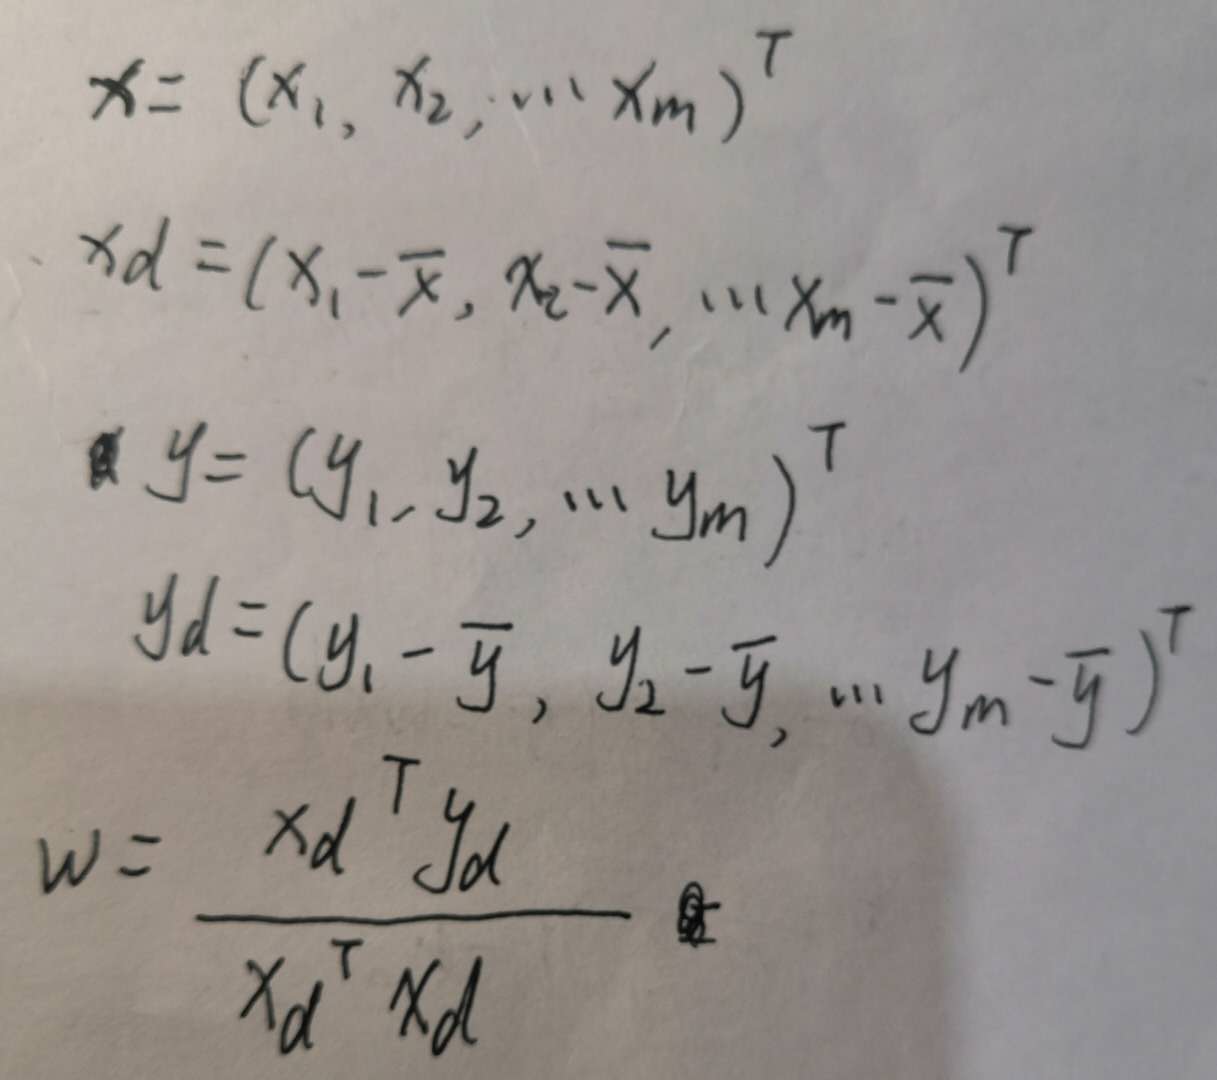 x = (x₁, x₂, ... xₘ)ᵀ
xd = (x₁ - x̄, x₂ - x̄, ... xₘ - x̄)ᵀ
y = (y₁, y₂, ... yₘ)ᵀ
yd = (y₁ - ȳ, y₂ - ȳ, ... yₘ - ȳ)ᵀ
w = xdᵀ yd / xdᵀ xd